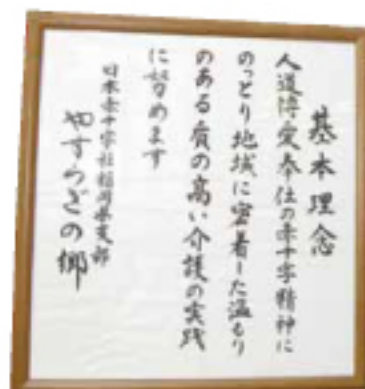 基本理念
人道博愛奉仕の赤十字精神に
のっとり地域に密着した温もり
のある質の高い介護の実践
に努めます
日本赤十字社福岡県支部
やすらぎの郷